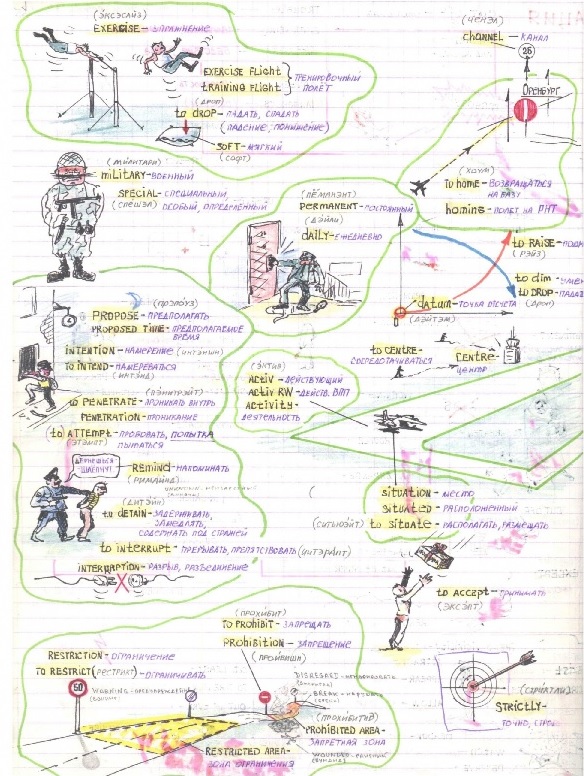 (ЭКСЭСАЙЗ)
EXERCISE - УПРАЖНЕНИЕ
EXERCISE Flight
TRAINING Flight
ТРЕНИРОВОЧНЫЙ ПОЛЕТ
(ДРОП)
to DROP - ПАДАТЬ, СПАДАТЬ
(ПАДЕНИЕ, ПОНИЖЕНИЕ)
SOFT - МЯГКИЙ
(СОФТ)
(ЧЕНЭЛ)
channel - КАНАЛ
26
ОРЕНБУРГ
(ХОУМ)
to home - ВОЗВРАЩАТЬСЯ
НА БАЗУ
homing - ПОЛЕТ НА ПНТ
(МИЛИТАРИ)
military - ВОЕННЫЙ
SPECIAL - СПЕЦИАЛЬНЫЙ,
(СПЕШЭЛ) ОСОБЫЙ, ОПРЕДЕЛЕННЫЙ
(ПЁМАНЭНТ)
PERMANENT - ПОСТОЯННЫЙ
(ДЭЙЛИ)
DAILY - ЕЖЕДНЕВНО
to RAISE -
(РЭЙЗ)
to dim -
to DROP -
(ДРОП)
datum - ТОЧКА ОТСЧЕТА
(ДЭЙТЭМ)
(ПРЭПОУЗ)
PROPOSE - ПРЕДПОЛАГАТЬ
PROPOSED TIME - ПРЕДПОЛАГАЕМОЕ
ВРЕМЯ
INTENTION - НАМЕРЕНИЕ (ИНТЭНШН)
to INTEND - НАМЕРЕВАТЬСЯ
(ИНТЭНД)
(ПЭНИТРЭЙТ)
to PENETRATE - ПРОНИКАТЬ ВНУТРЬ
PENETRATION - ПРОНИКАНИЕ
(to ATTEMPT - ПРОБОВАТЬ, ПОПЫТКА
(ЭТЭМПТ) ПЫТАТЬСЯ
to CENTRE -
СОСРЕДОТАЧИВАТЬСЯ
CENTRE -
ЦЕНТР
(ЭКТИВ)
ACTIV - ДЕЙСТВУЮЩИЙ
ACTIV RW - ДЕЙСТВ. ВПП
ACTIVITY -
ДЕЯТЕЛЬНОСТЬ
REMIND - НАПОМИНАТЬ
(РИМАЙНД)
(ДИТЭЙН)
to DETAIN - ЗАДЕРЖИВАТЬ,
ЗАМЕДЛЯТЬ,
СОДЕРЖАТЬ ПОД СТРАЖЕЙ
to INTERRUPT - ПРЕРЫВАТЬ, ПРЕПЯТСТВОВАТЬ (ИНТЭРАПТ)
INTERRUPTION - РАЗРЫВ, РАЗЪЕДИНЕНИЕ
SITUATION - МЕСТО
SITUATED - РАСПОЛОЖЕННЫЙ
(СИТЬЮЭЙТ) to SITUATE - РАСПОЛАГАТЬ, РАЗМЕЩАТЬ
to ACCEPT - ПРИНИМАТЬ
(ЭКСЭПТ)
(ПРОХИБИТ)
to PROHIBIT - ЗАПРЕЩАТЬ
PROHIBITION - ЗАПРЕЩЕНИЕ
(ПРОЙБИШН)
RESTRICTION - ОГРАНИЧЕНИЕ
TO RESTRICT (РЕСТРИКТ) - ОГРАНИЧИВАТЬ
50
WARNING - ПРЕДУПРЕЖДЕНИЕ
DISREGARD -
BREAK -
(ПРОХИБИТИД)
PROHIBITED AREA -
ЗАПРЕТНАЯ ЗОНА
RESTRICTED AREA -
ЗОНА ОГРАНИЧЕНИЯ
WOUNDED -
(СТРИКТЛИ)
STRICTLY -
ТОЧНО,